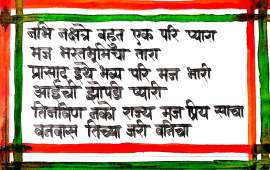 नभि नक्षत्रे बहुत एक परि प्यारा
मज भरतभूमिचा तारा
प्रासाद इथे भव्य परि मज भारी
आईची झोपडी प्यारी
तिजविण नको राज्य मज प्रिय साचा
वनवास तिच्या जरी वनिचा